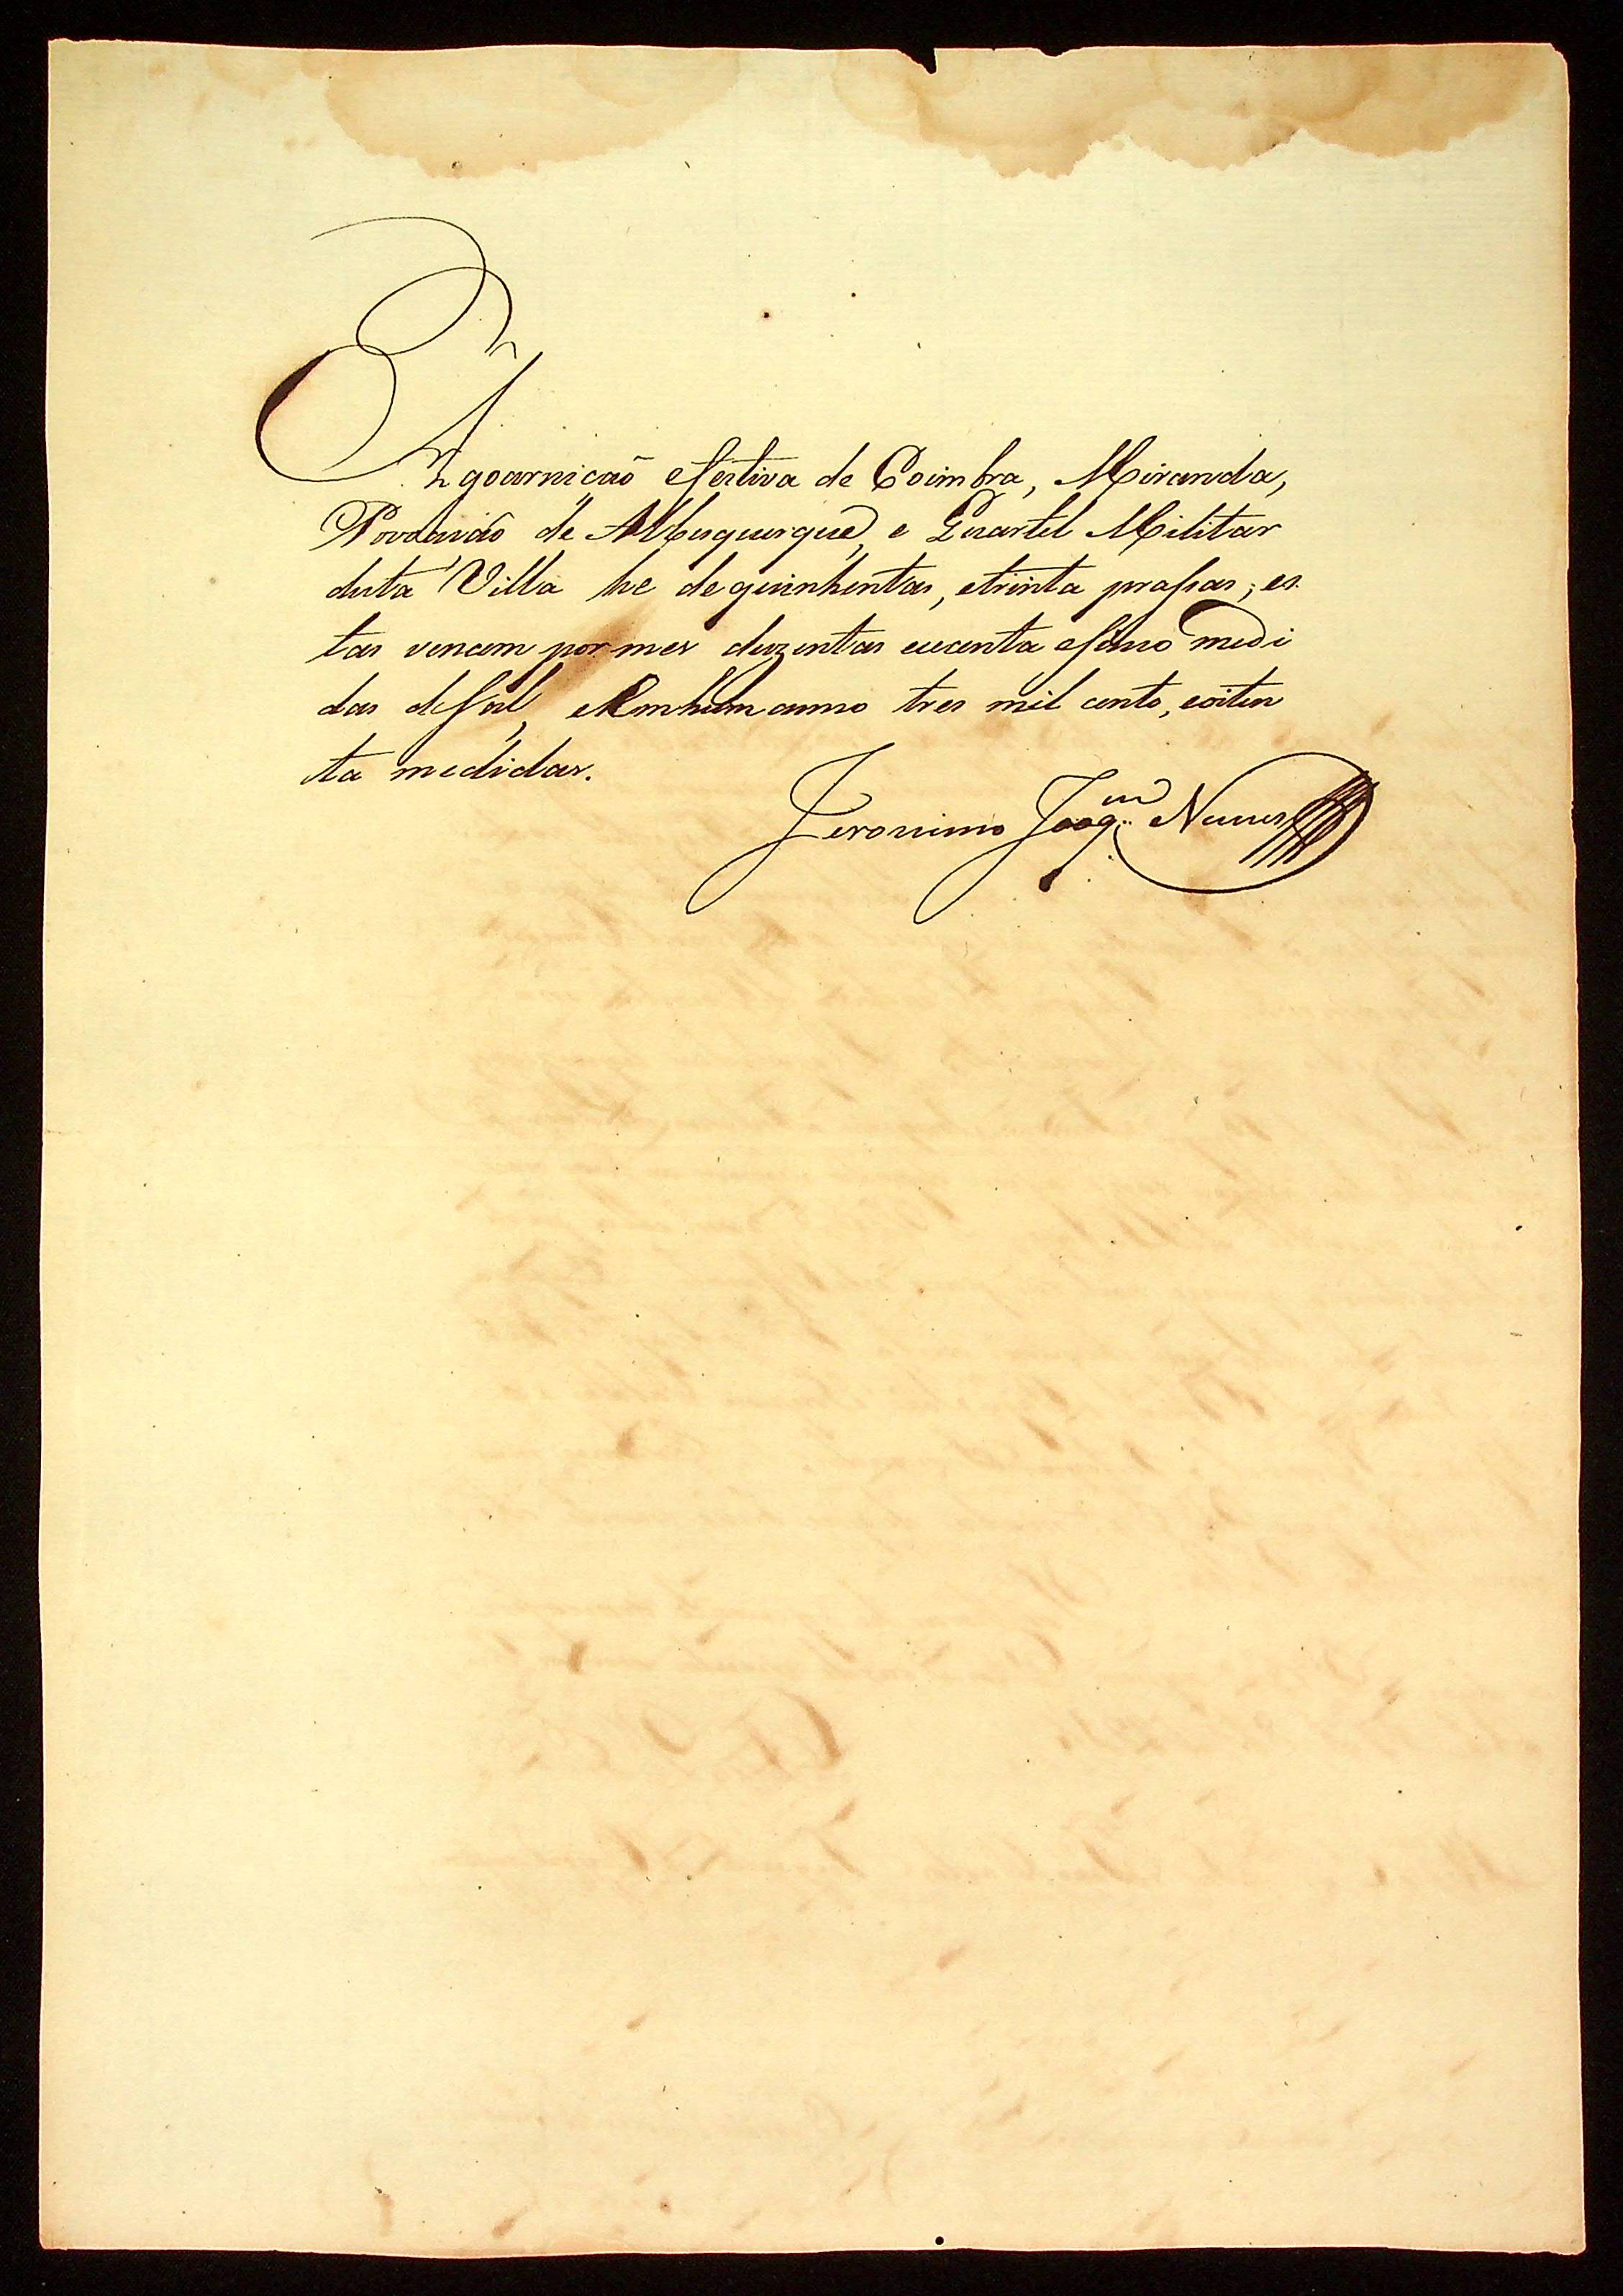 A goarnicaõ efectiva de Coimbra, Miranda,
Povoacaõ de Albuquerque, e Quartel Militar
desta Villa he de quinhentas, etrinta prassas; es-
tas vencem por mes duzentas esecenta esinco medi
das de sal, e em hum anno tres mil cento, eoiten
ta medidas.
Jeronimo Joaq.m Nunes